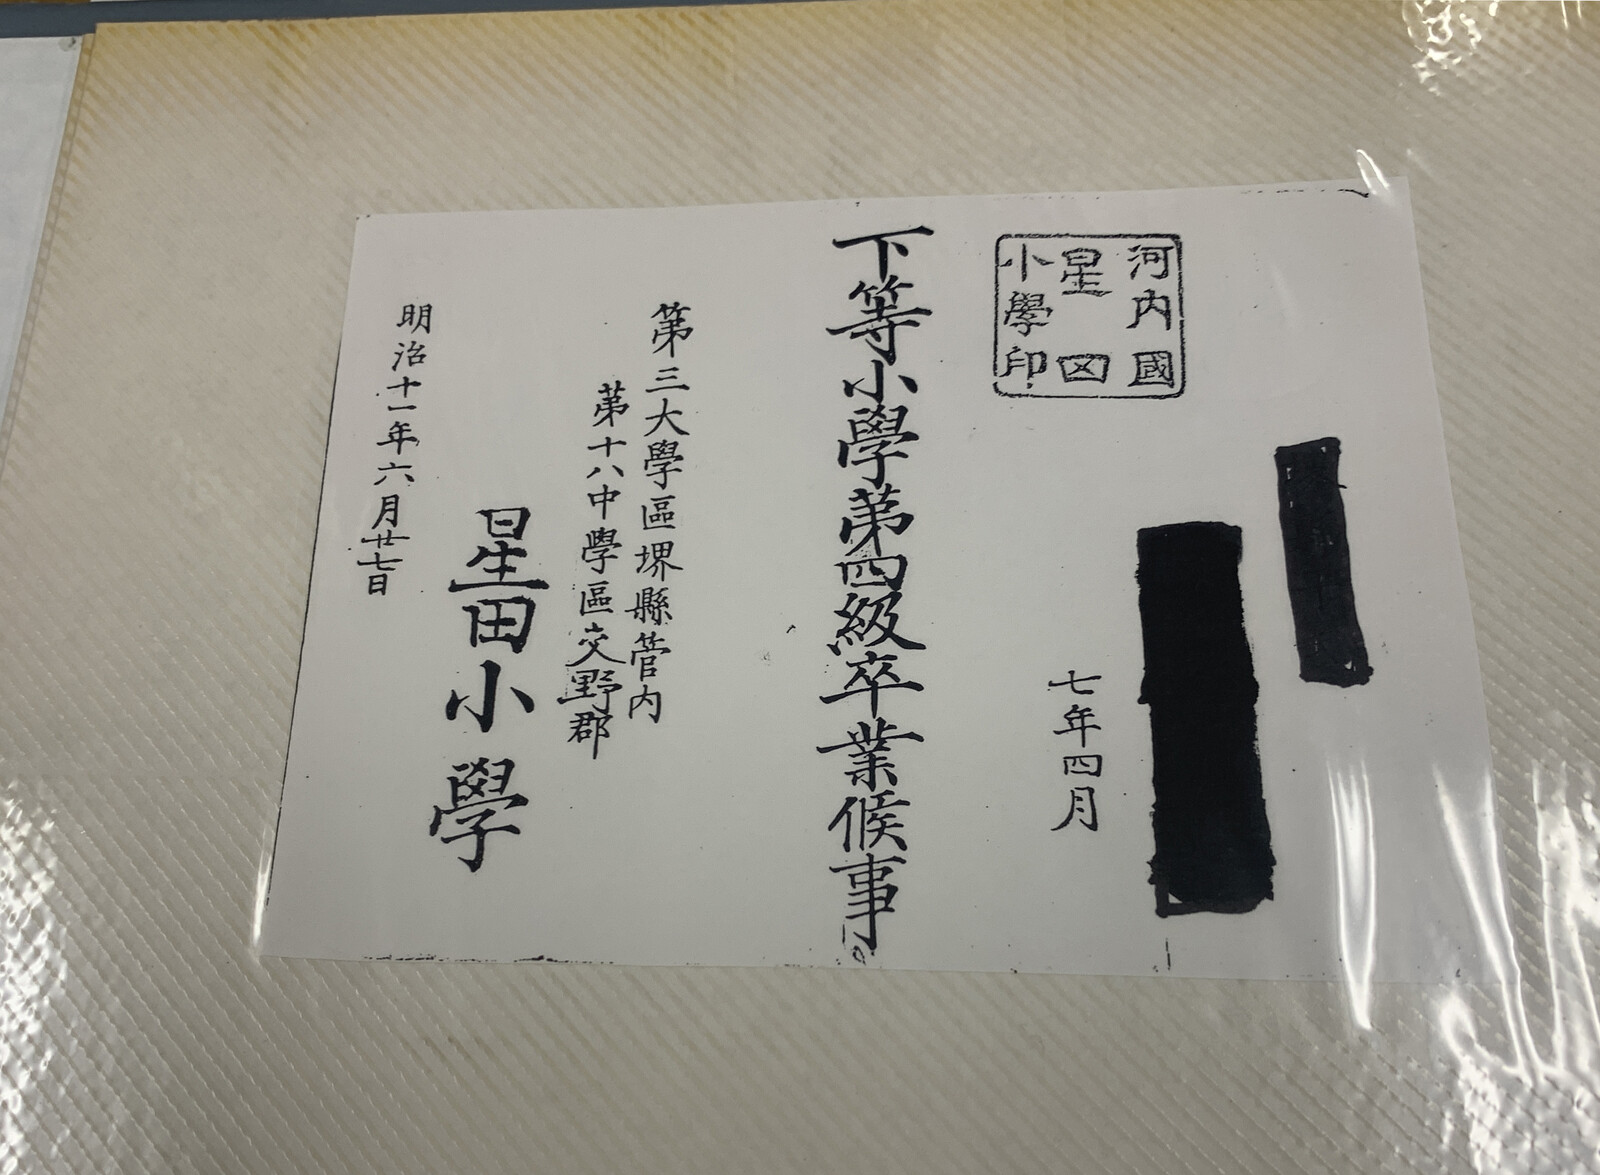 河内國
星田
小學印
七年四月
下等小學第四級卒業候事
第三大學區堺縣管内
第十八中學區交野郡
星田小學
明治十一年六月廿七日